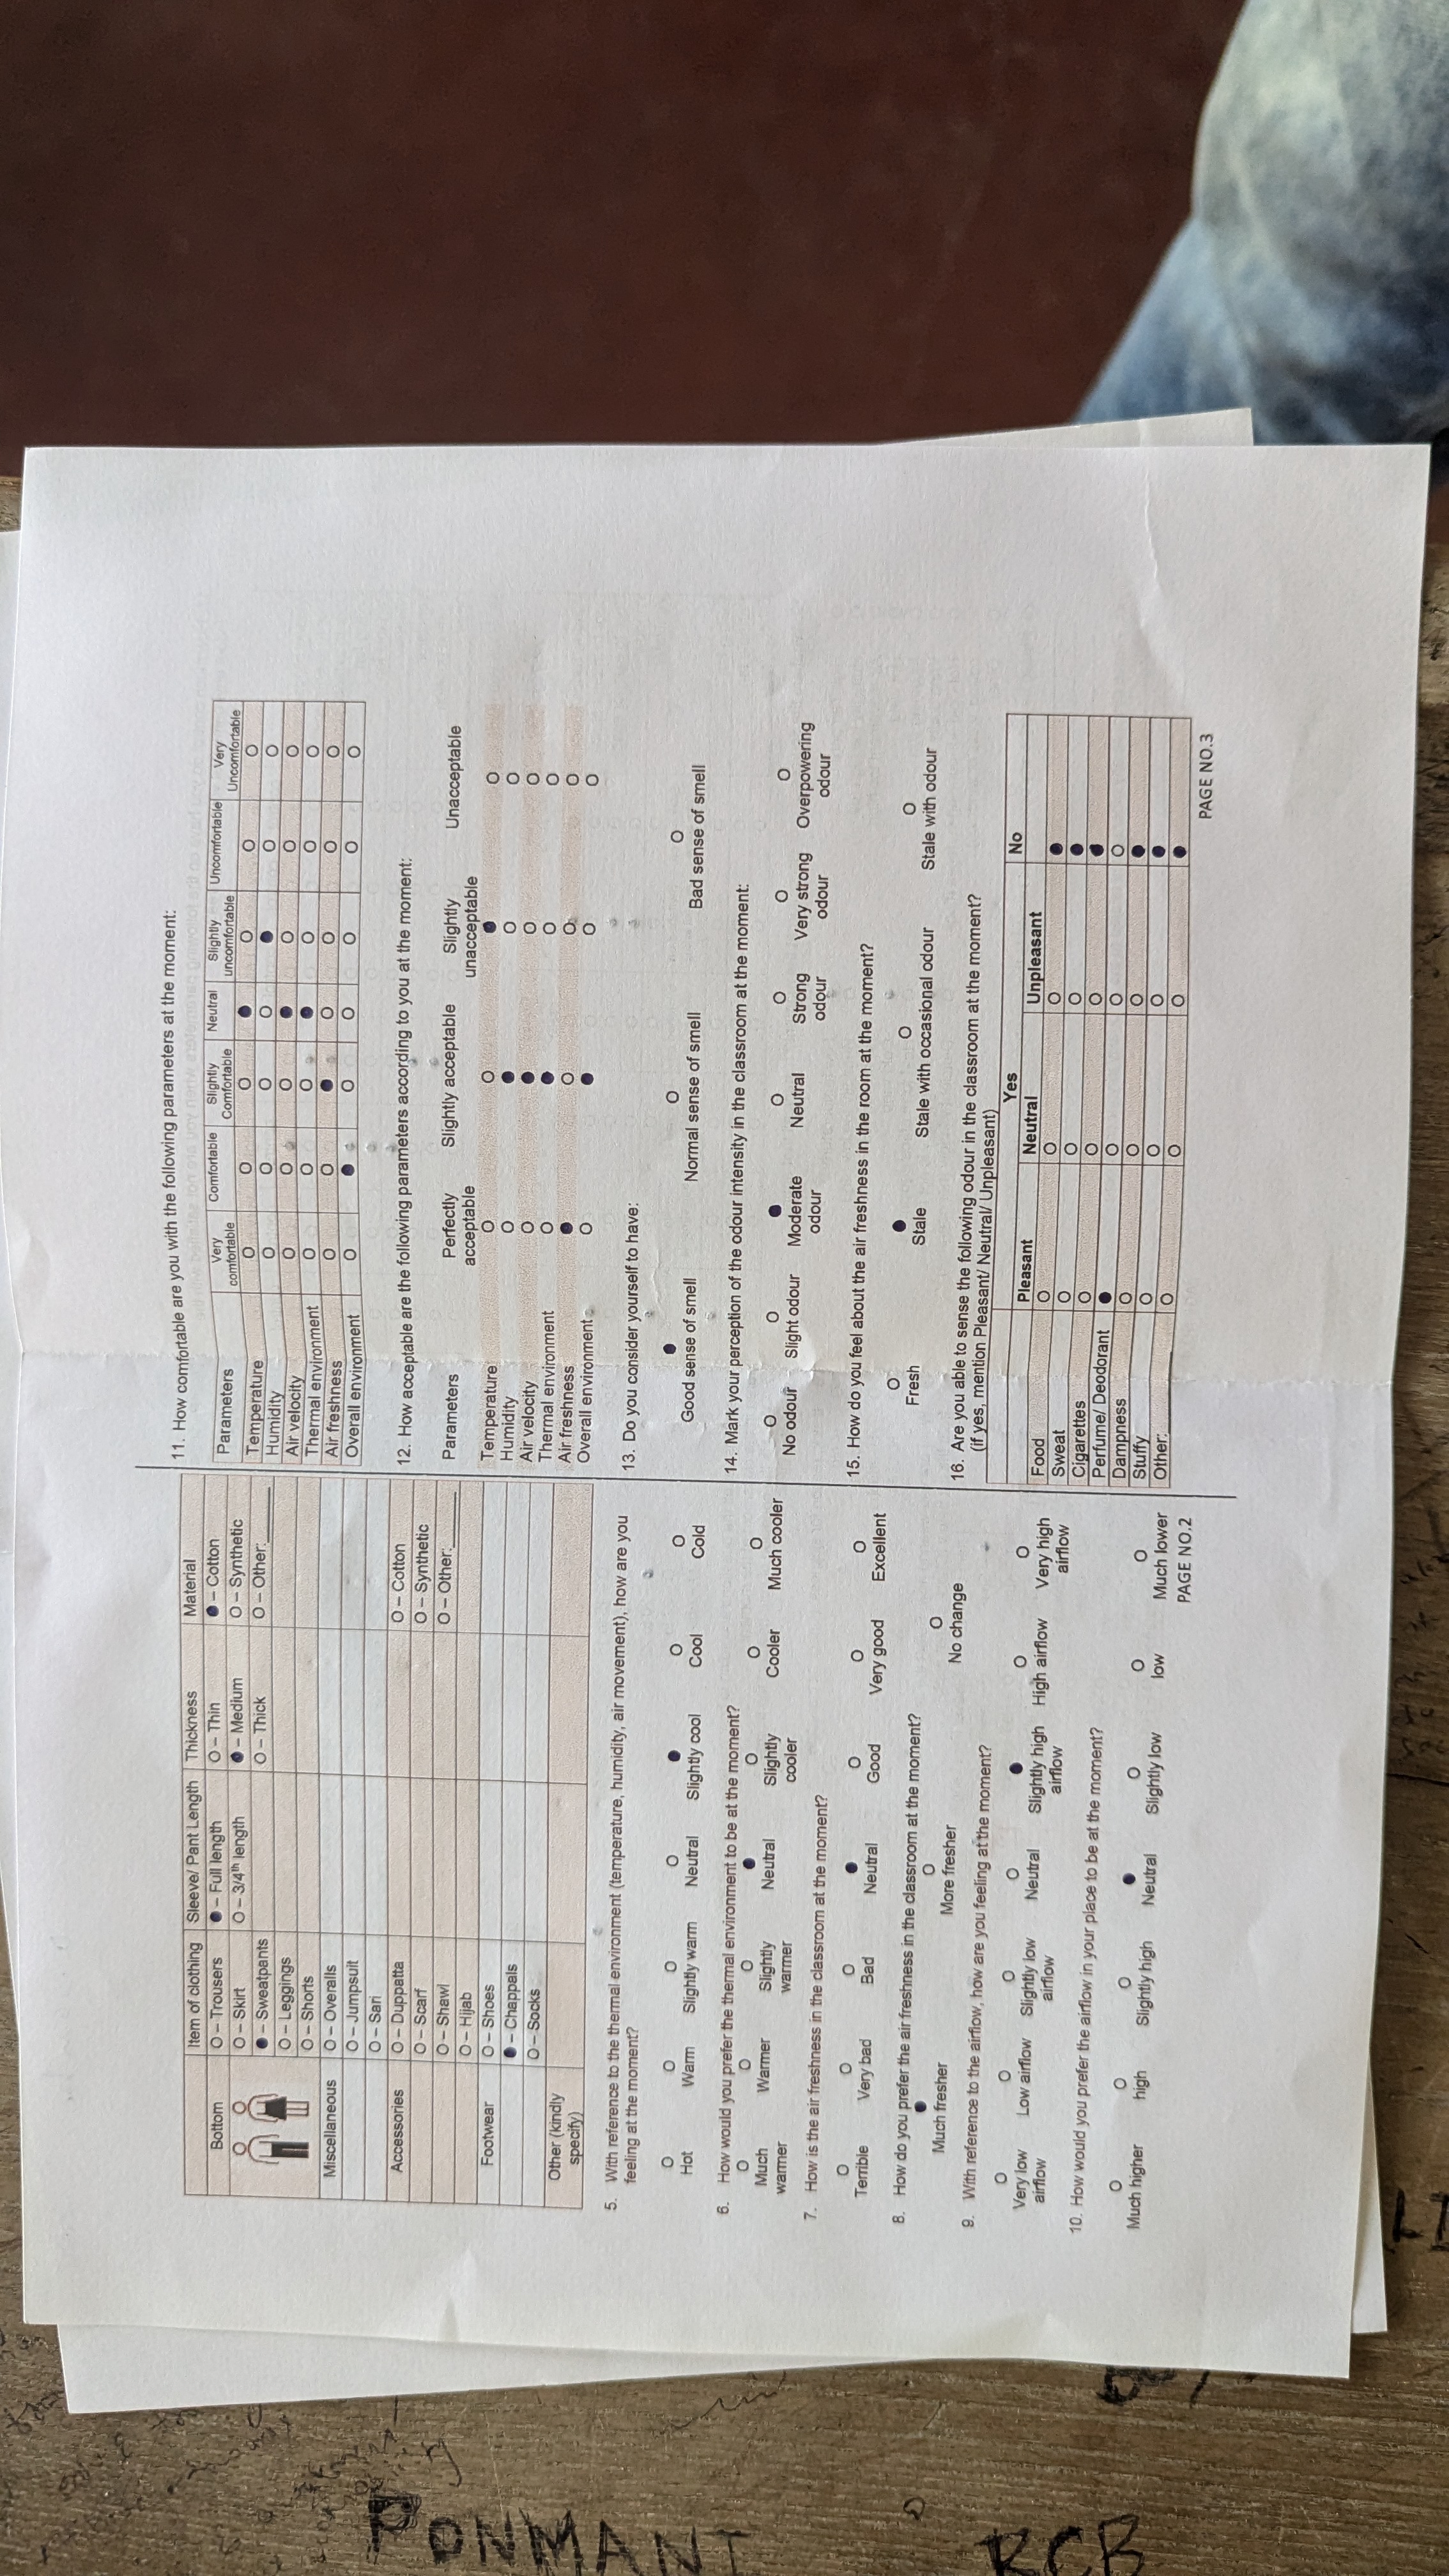 Item of clothing Sleeve/ Pant Length Thickness Material
Bottom O – Trousers ● – Full length O – Thin ● – Cotton
O – Skirt O – 3/4th length ● – Medium O – Synthetic
● – Sweatpants O – Thick O – Other:______
O – Leggings
O – Shorts
Miscellaneous O – Overalls
O – Jumpsuit
O – Sari
Accessories O – Duppatta O – Cotton
O – Scarf O – Synthetic
O – Shawl O – Other:______
O – Hijab
Footwear O – Shoes
● – Chappals
O – Socks
Other (kindly
specify)
5. With reference to the thermal environment (temperature, humidity, air movement), how are you
feeling at the moment?
O O O O ● O O
Hot Warm Slightly warm Neutral Slightly cool Cool Cold
6. How would you prefer the thermal environment to be at the moment?
O O O ● O O O
Much Warmer Slightly Neutral Slightly Cooler Much cooler
warmer warmer cooler
7. How is the air freshness in the classroom at the moment?
O O O ● O O O
Terrible Very bad Bad Neutral Good Very good Excellent
8. How do you prefer the air freshness in the classroom at the moment?
● O O
Much fresher More fresher No change
9. With reference to the airflow, how are you feeling at the moment?
O O O O ● O O
Very low Low airflow Slightly low Neutral Slightly high High airflow Very high
airflow airflow airflow airflow
10. How would you prefer the airflow in your place to be at the moment?
O O O ● O O O
Much higher high Slightly high Neutral Slightly low low Much lower
PAGE NO.2
11. How comfortable are you with the following parameters at the moment:
Parameters Very Comfortable Slightly Neutral Slightly Uncomfortable Very
comfortable Comfortable uncomfortable Uncomfortable
Temperature O O O ● O O O
Humidity O O O O ● O O
Air velocity O O O ● O O O
Thermal environment O O O ● O O O
Air freshness O O ● O O O O
Overall environment O ● O O O O O
12. How acceptable are the following parameters according to you at the moment:
Parameters Perfectly Slightly acceptable Slightly Unacceptable
acceptable unacceptable
Temperature O O ● O
Humidity O ● O O
Air velocity O ● O O
Thermal environment O ● O O
Air freshness ● O O O
Overall environment O ● O O
13. Do you consider yourself to have:
● O O
Good sense of smell Normal sense of smell Bad sense of smell
14. Mark your perception of the odour intensity in the classroom at the moment:
O O ● O O O O
No odour Slight odour Moderate Neutral Strong Very strong Overpowering
odour odour odour odour
15. How do you feel about the air freshness in the room at the moment?
O ● O O
Fresh Stale Stale with occasional odour Stale with odour
16. Are you able to sense the following odour in the classroom at the moment?
(if yes, mention Pleasant/ Neutral/ Unpleasant)
Yes No
Pleasant Neutral Unpleasant
Food O O O ●
Sweat O O O ●
Cigarettes O O O ●
Perfume/ Deodorant ● O O O
Dampness O O O ●
Stuffy O O O ●
Other:________ O O O ●
PAGE NO.3
PONMANI
RCB